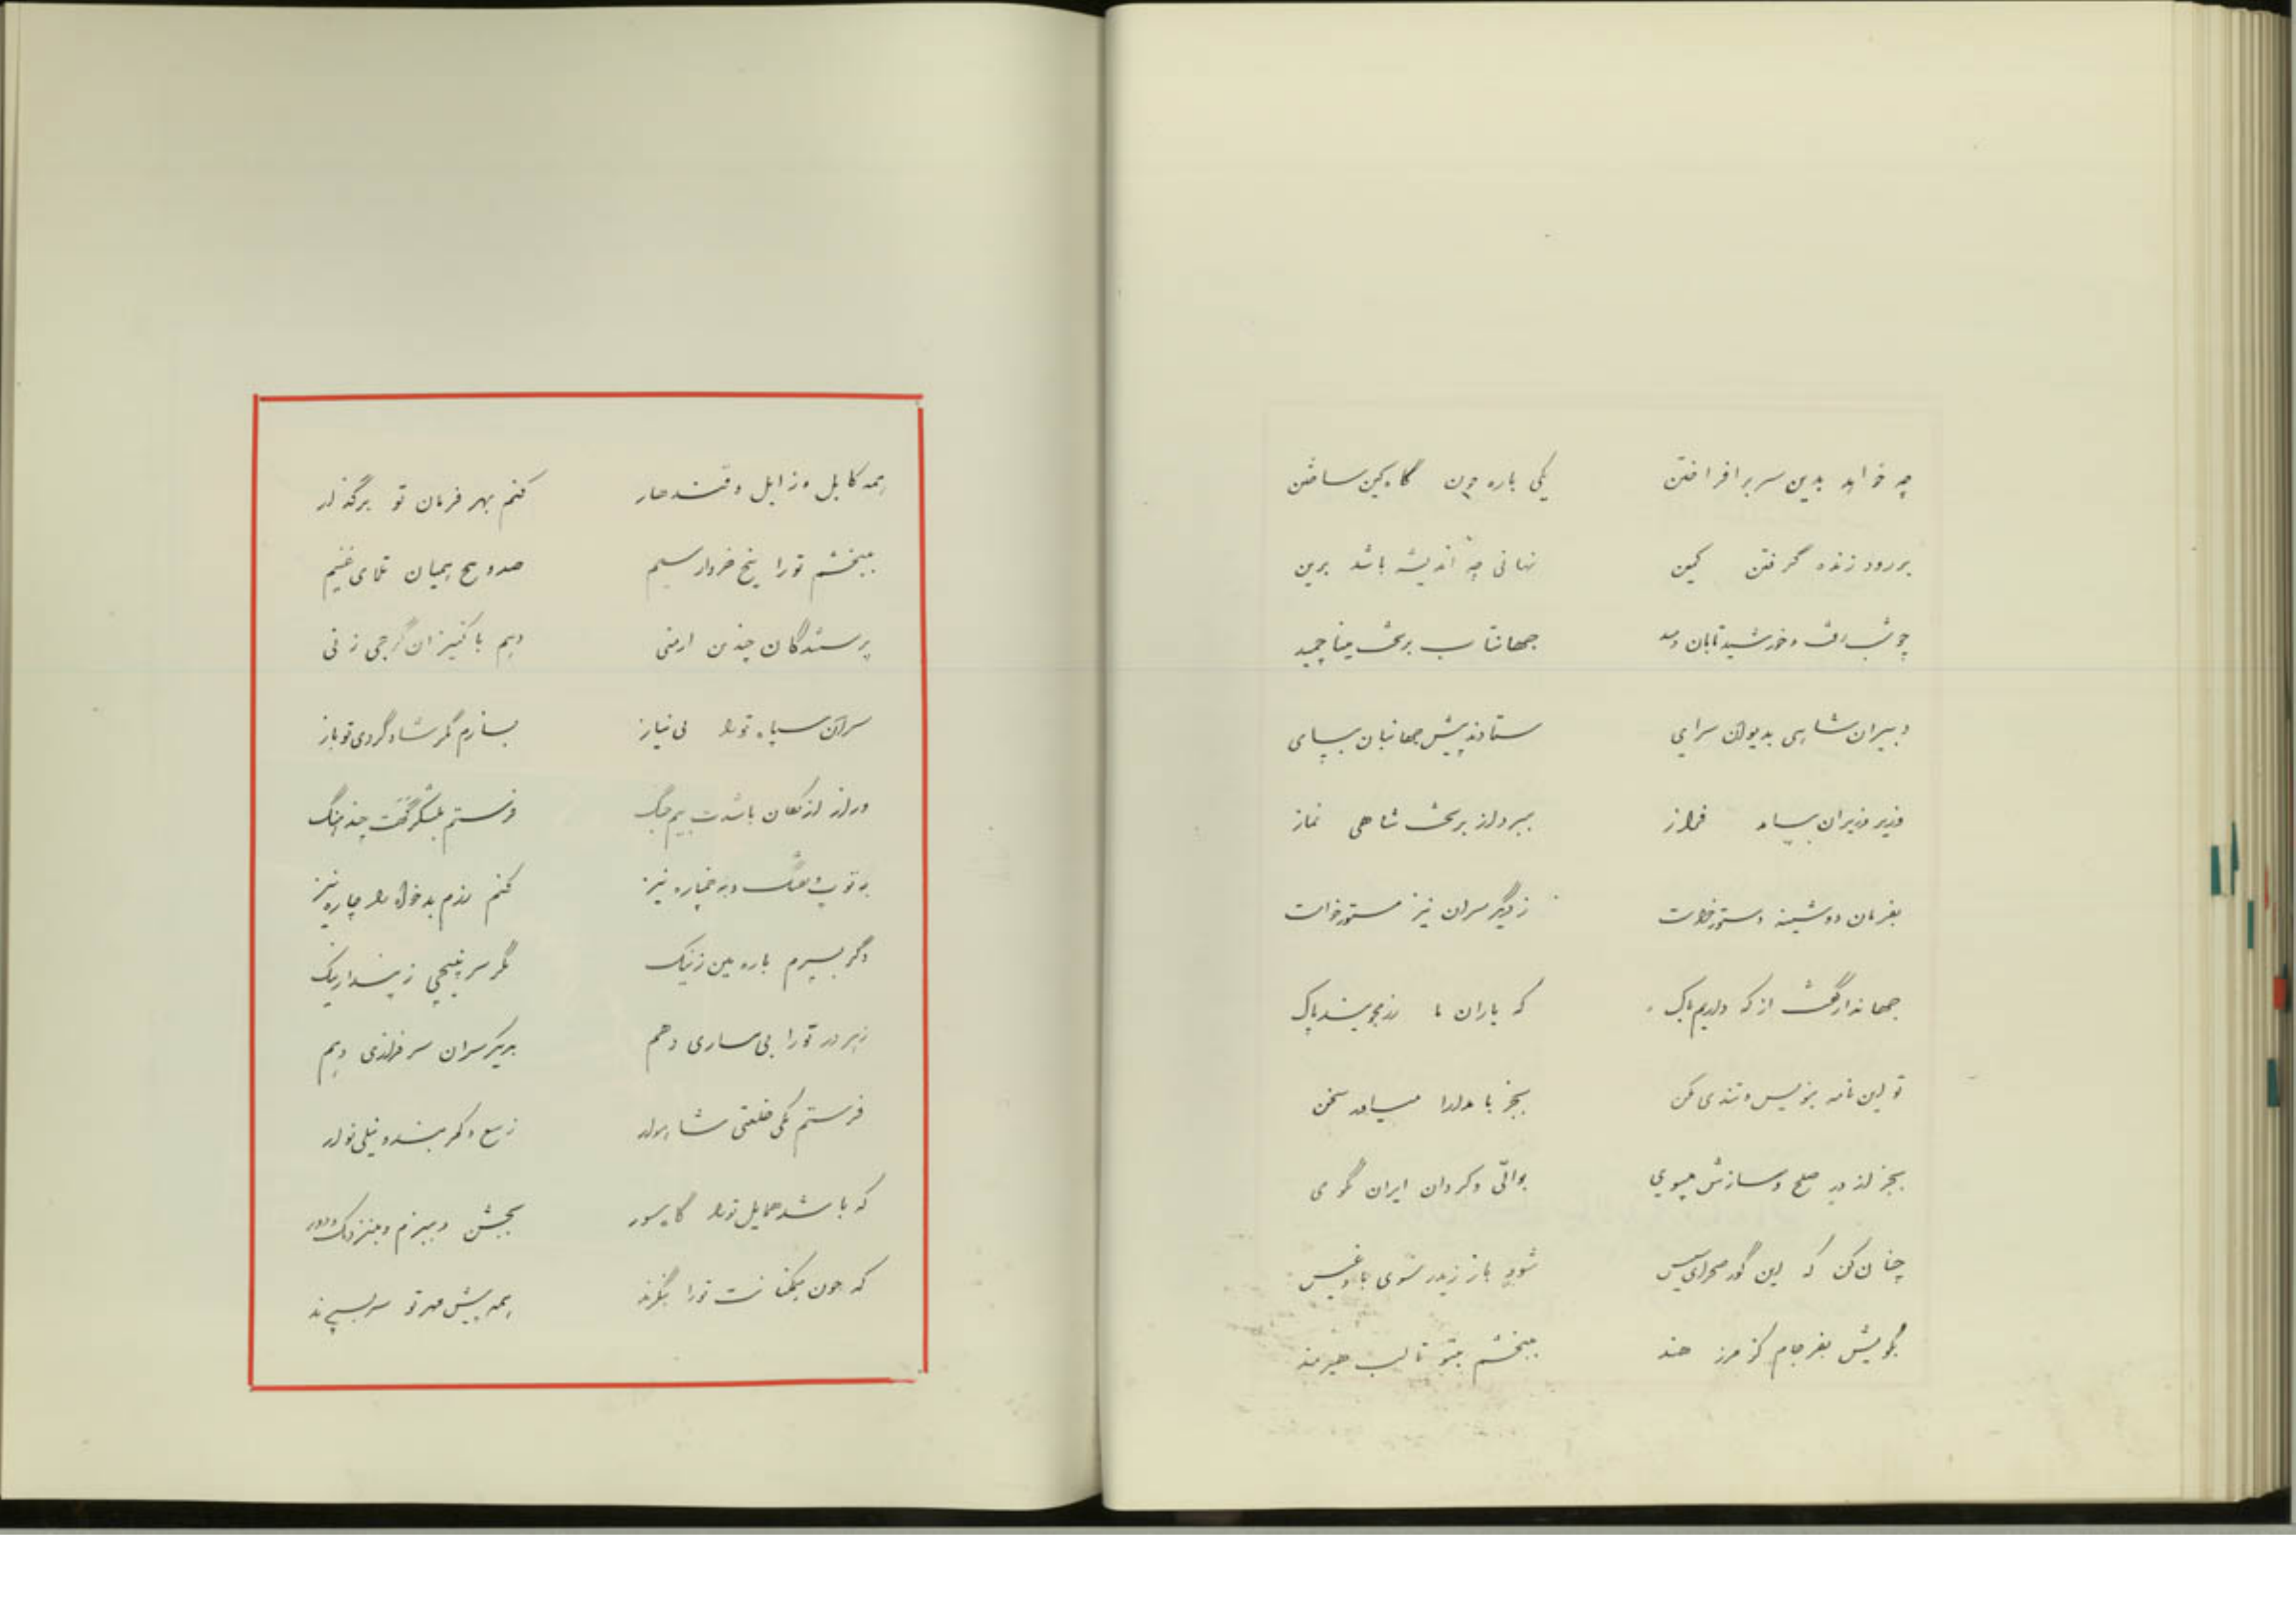 چه خواهد بدین سر برافراختن یکی باره چون گاه کین ساختن
برود زنده گرفتن کمین نهانی چه اندیشه باشد برین
چو شب رفت و خورشید تابان دمید جهانتاب بر تخت مینا چمید
دبیران شاهی بدیوان سرای ستادند پیش جهانبان بپای
وزیر وزیران بیامد فراز ببرد از بر تخت شاهی نماز
بفرمان دوشینه دستور خواست ز دیگر سران نیز دستور خواست
جهاندار گفت از که داریم باک که یاران ما رزمجویند پاک
تو این نامه بنویس و تندی مکن بجز با مدارا میاور سخن
بجز از در صلح و سازش مپوی بوالی و گردان ایران بگوی
چنان کن که این گور صحرای شود باز زیدر سوی بادغیس
بگویش بفرجام کز مرز هند ببخشم بتو تا لب هیرمند
همه کابل و زابل و قندهار کنم بهر فرمان تو برگذار
ببخشم تو را پنج خروار سیم صد و پنج همیان
پرستندگان چندین ارمنی دهم با کنیزان گرجی زنی
سران سپاه تورا بی نیاز بسازم مگر شاد گردی تو باز
ور از ازبکان باشدت بیم جنگ فرستم بلشکرگهت چند هنگ
به توپ و تفنگ و به خمپاره نیز کنم رزم بدخواه را چاره نیز
دگر بسپرم باره بین زنیک مگر سر نپیچی ز پندار نیک
زهر در تو را بی‌ ساری دهم بدیگر سران سرفرازی دهم
فرستم یکی خلعتی شاهوار ز تیغ و کمربند و نیلی نوار
که باشد حمایل تورا گاه سور بجشن و ببزم و بنزدیک و دور
که چون همگنانت تو را بنگرند همه پیش مهر تو سر بسپرند